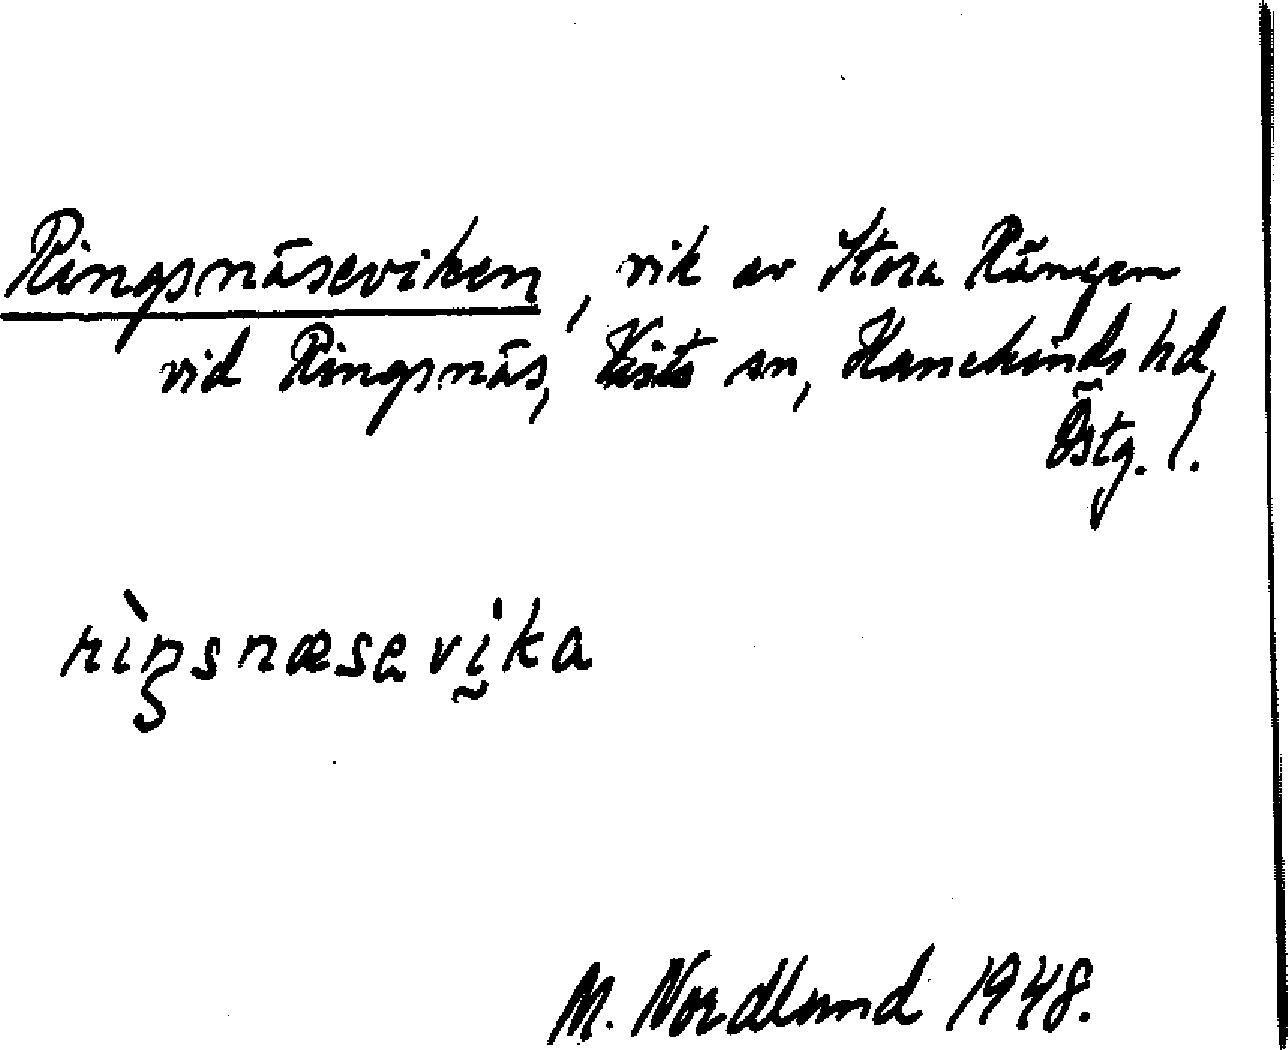 Ringsnäseviken, vik av Stora Rängen
vid Ringsnäs, Vists sn, Hanekinds hd,
Östg. l.
rìŋsnæsevika
M. Nordlund 1948.